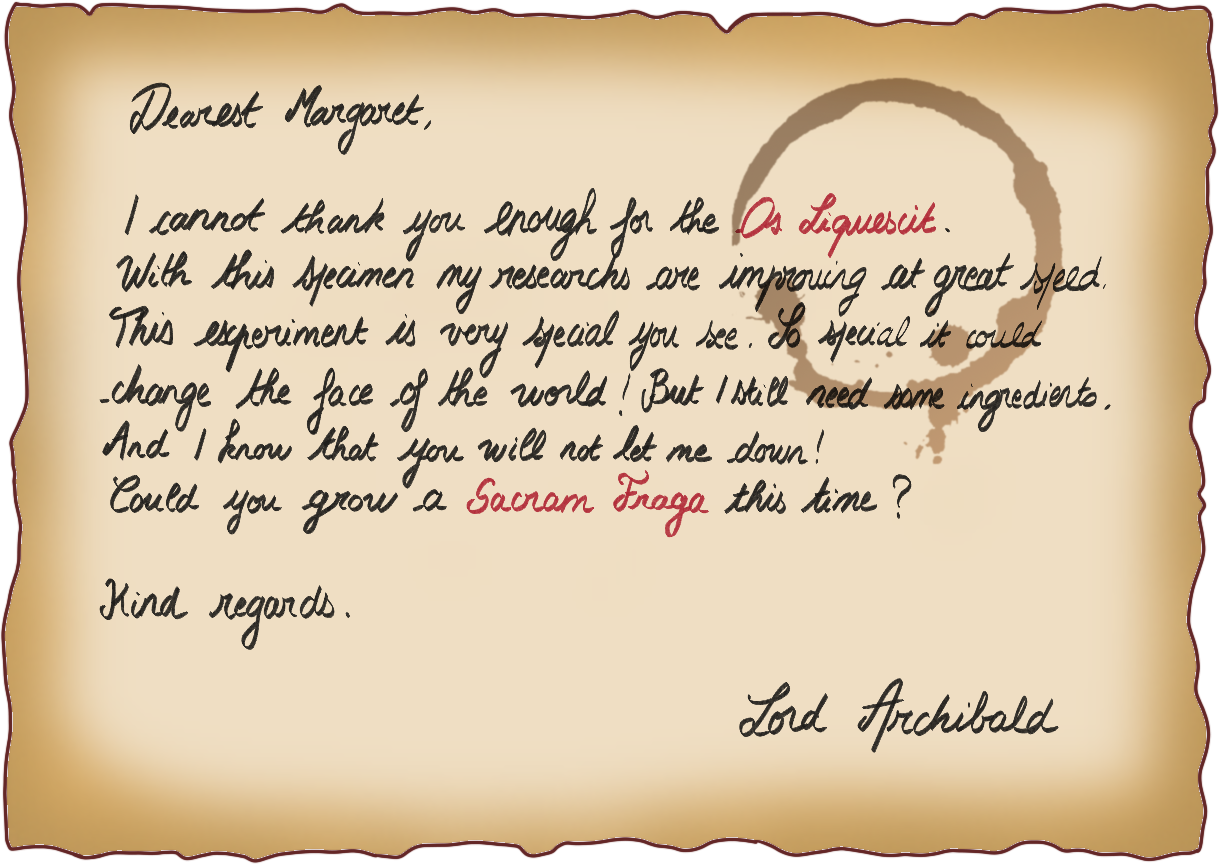 Dearest Margaret,
I cannot thank you enough for the Os Liquescit.
With this specimen my researchs are improving at great speed.
This experiment is very special you see. So special it could
change the face of the world! But I still need some ingredients.
And I know that you will not let me down!
Could you grow a Sacram Fraga this time?
Kind regards.
Lord Archibald